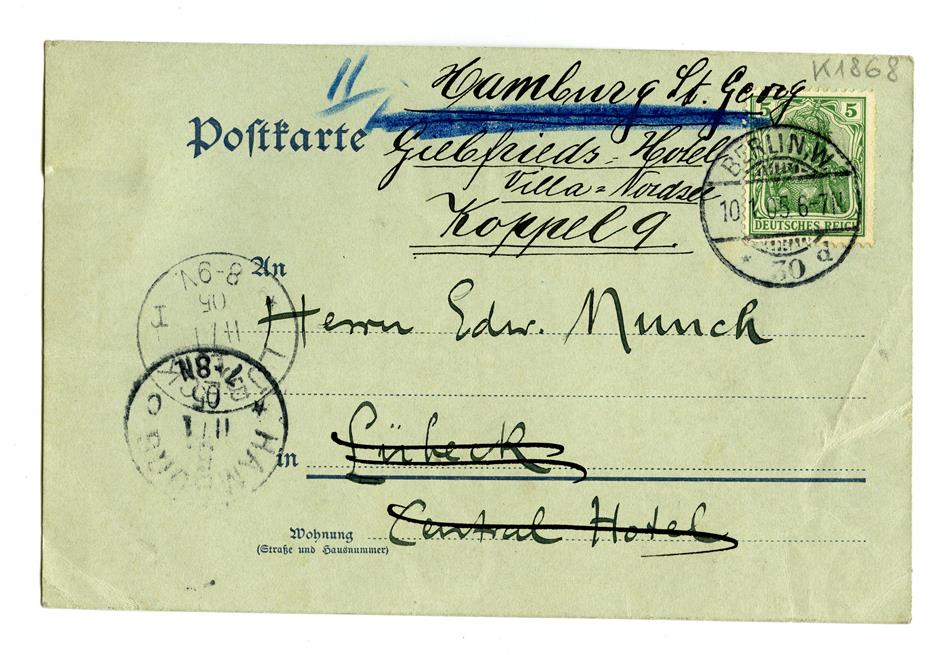 K1868
11
Hamburg St. Georg
Postkarte
Hotell
Villa=Nordsee
Koppel 9.
5 5
DEUTSCHES REICH
BERLIN.W.
10.1.05 6-7N
* 30 d
An
Herrn Edw. Munch
8-9V
05
11 1
in Lübeck
* HAMBURG
11/1
05
7-8N
Wohnung
(Straße und Hausnummer)
Central Hotel